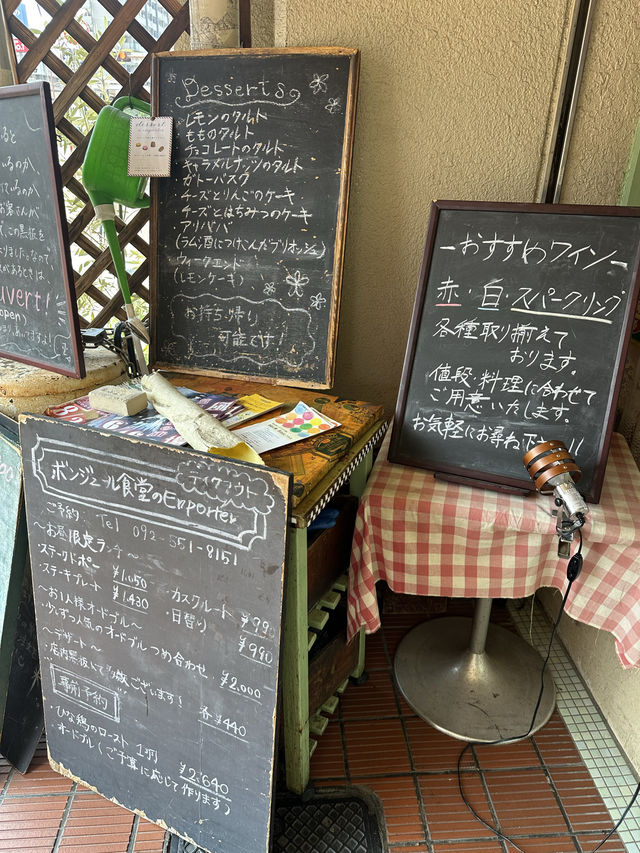 いるのか、
uvert!
open)
Desserts
レモンのタルト
もものタルト
チョコレートのタルト
キャラメルナッツのタルト
ガトーバスク
チーズとりんごのケーキ
チーズとはちみつのケーキ
アリババ
(ラム酒につけこんだブリオッシュ)
ウィークエンド
(レモンケーキ)
お持ち帰り
可能です!
dessert
－おすすめワイン－
赤・白・スパークリング
各種取り揃えて
おります。
値段・料理に合わせて
ご用意いたします。
お気軽にお尋ね下さい!!
テイクアウト
ボンジュール食堂のEmporter
ご予約: Tel 092-551-8151
～お昼限定ランチ～
・ステーキ丼 ¥1,050
・ステーキプレート ¥1,430
・カスクルート ¥990
・日替り ¥990
～お1人様オードブル～
・少しずつ人気のオードブルつめ合わせ ¥2,000
～デザート～
・店内黒板にて多数ございます! 各¥440
事前予約
・ひな鶏のロースト 1羽 ¥2,640
・オードブル(ご予算に応じて作ります)